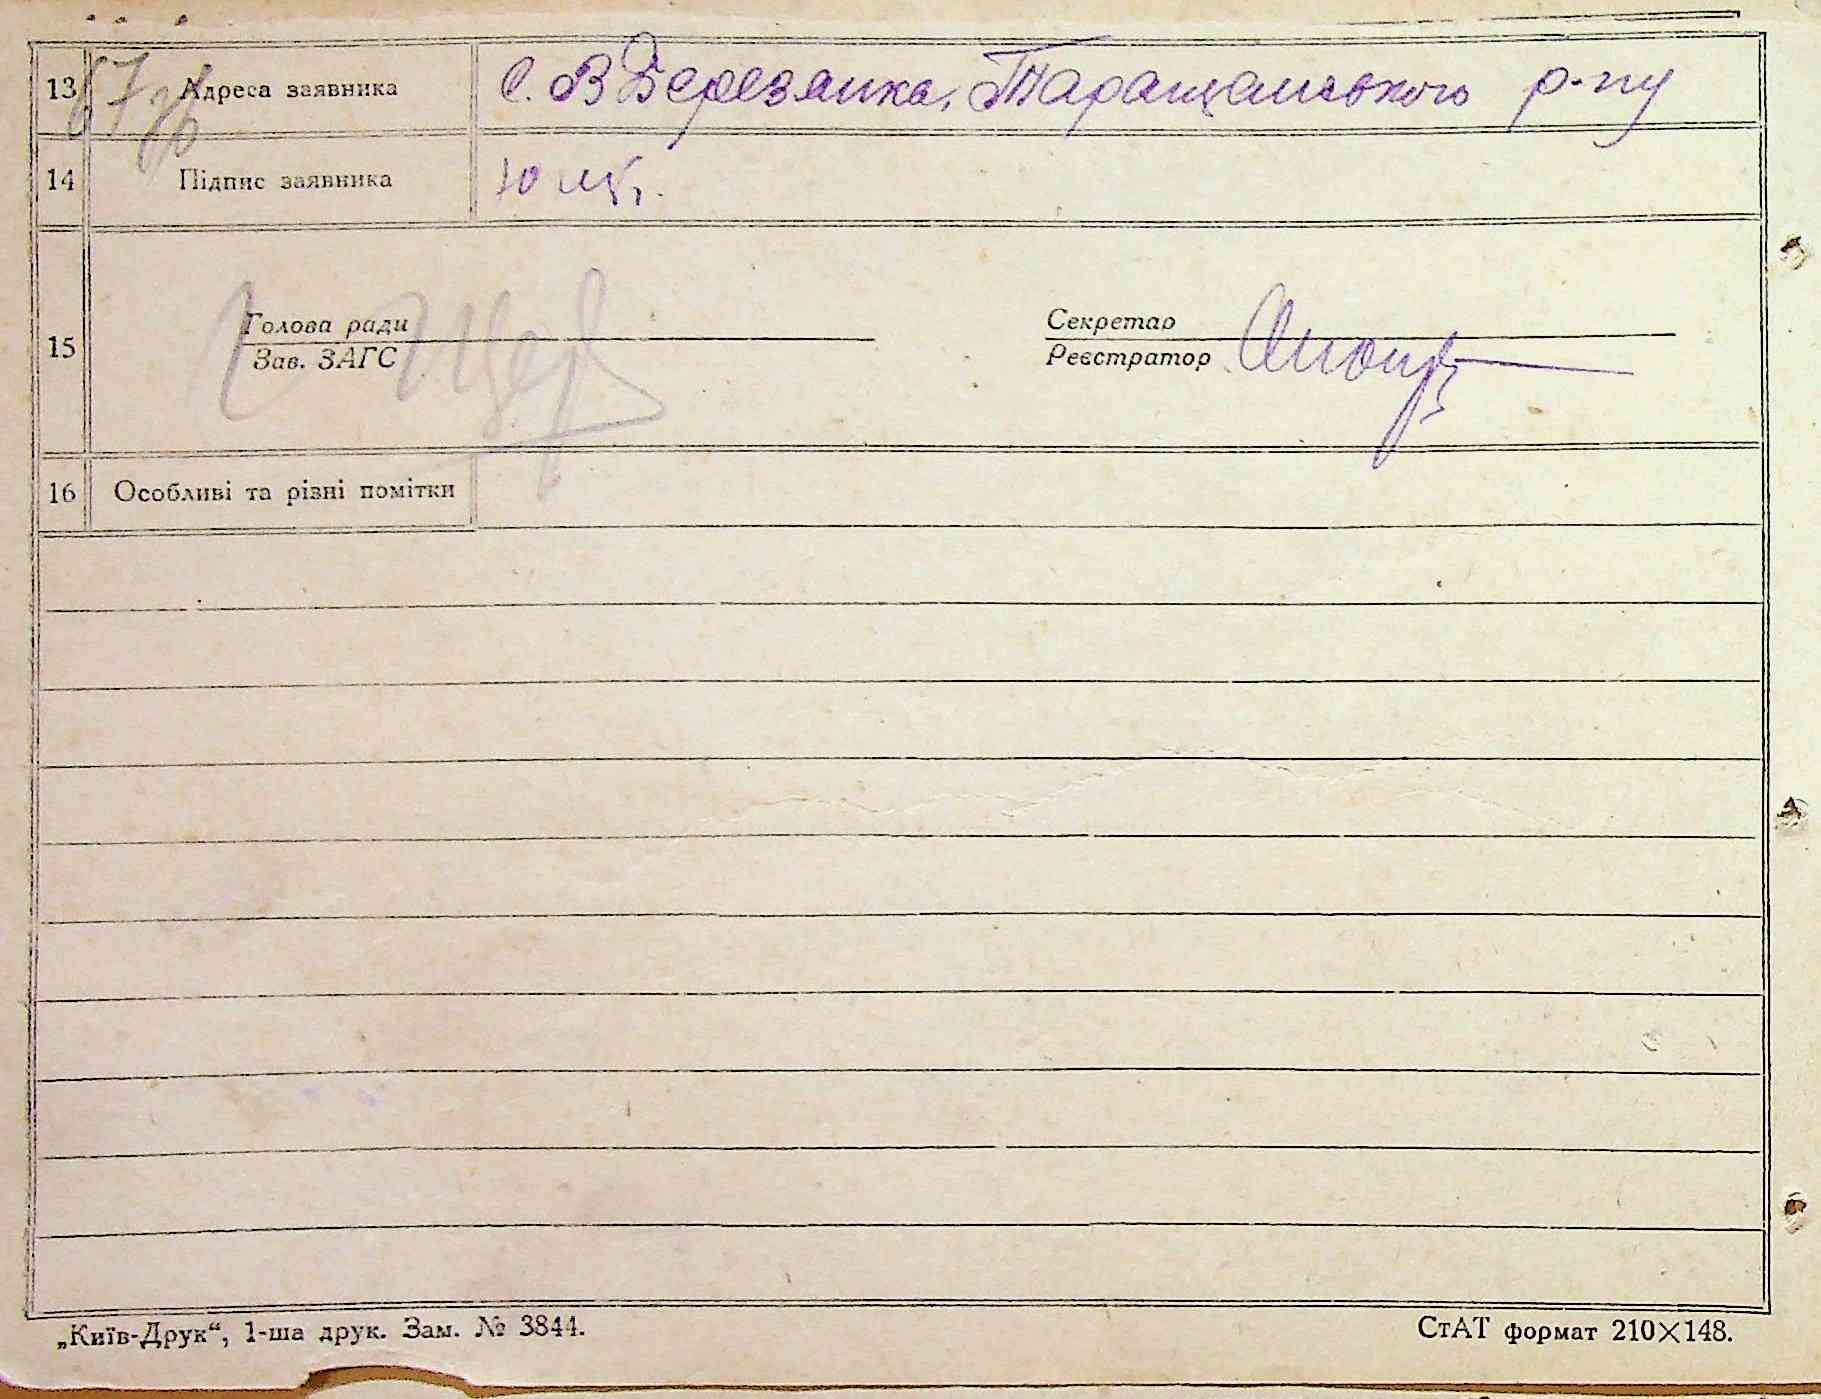 13 Адреса заявника с. В Березянка, Таращанського р-ну
14 Підпис заявника
15 Голова ради
Зав. ЗАГС
Секретар
Реєстратор
16 Особливі та різні помітки
„Київ-Друк“, 1-ша друк. Зам. № 3844.
СтАТ формат 210×148.